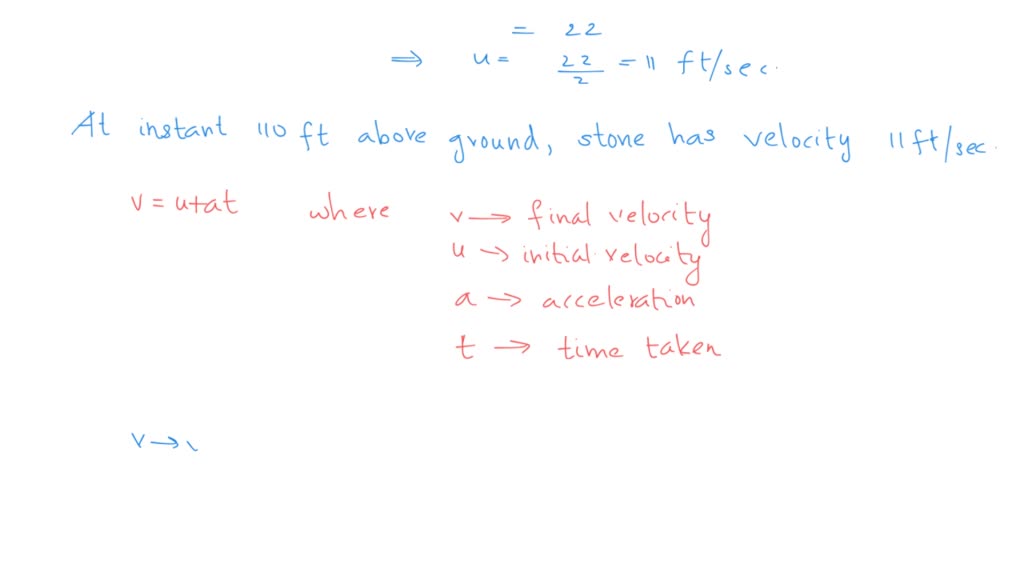 = 22
⟹ u = 22/2 = 11 ft/sec.
At instant 110 ft above ground, stone has velocity 11 ft/sec.
v = u+at where v → final velocity
u → initial velocity
a → acceleration
t → time taken
v →